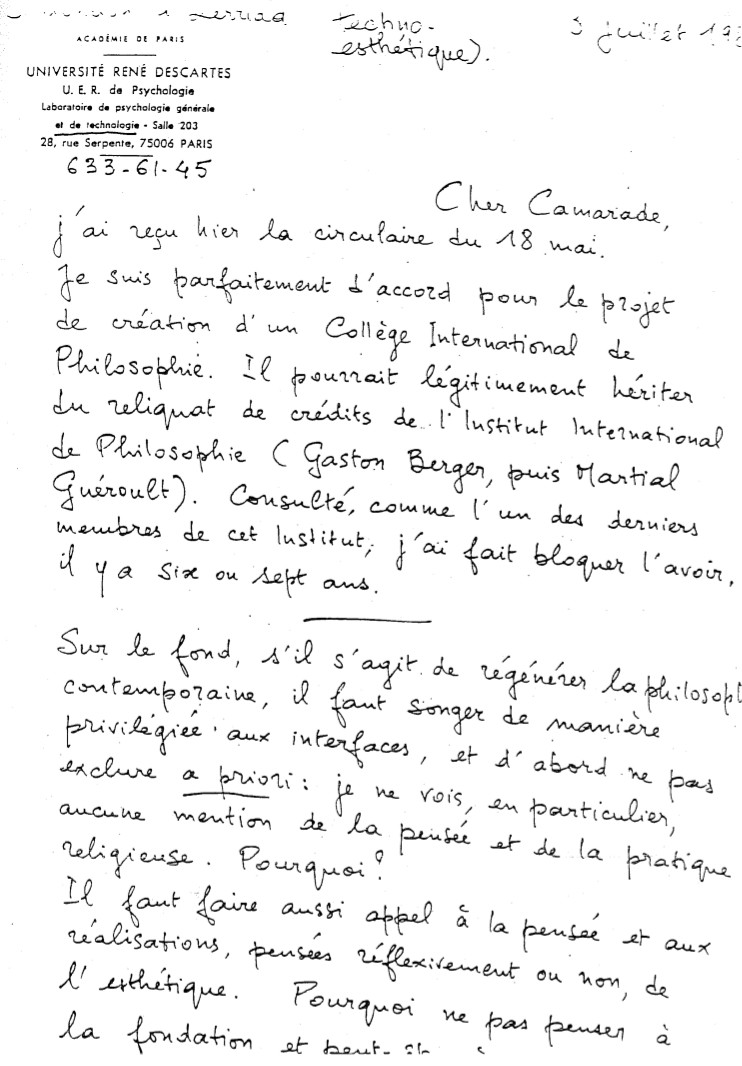 à Derrida
techno-
esthétique).
3 juillet 198
ACADÉMIE DE PARIS
UNIVERSITÉ RENÉ DESCARTES
U. E. R. de Psychologie
Laboratoire de psychologie générale
et de technologie - Salle 203
28, rue Serpente, 75006 PARIS
633-61-45
Cher Camarade,
j'ai reçu hier la circulaire du 18 mai.
Je suis parfaitement d'accord pour le projet
de création d'un Collège International de
Philosophie. Il pourrait légitimement hériter
du reliquat de crédits de l'Institut International
de Philosophie (Gaston Berger, puis Martial
Guéroult). Consulté, comme l'un des derniers
membres de cet Institut, j'ai fait bloquer l'avoir,
il y a six ou sept ans.
Sur le fond, s'il s'agit de régénérer la philosoph
contemporaine, il faut songer de manière
privilégiée aux interfaces, et d'abord ne pas
exclure a priori : je ne vois, en particulier,
aucune mention de la pensée et de la pratique
religieuse. Pourquoi?
Il faut faire aussi appel à la pensée et aux
réalisations, pensées réflexivement ou non, de
l'esthétique. Pourquoi ne pas penser à
la fondation et peut-